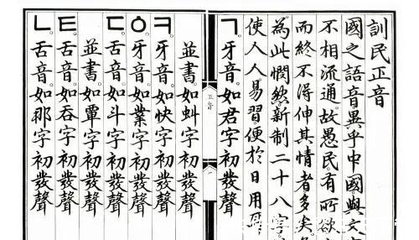 訓民正音
國之語音異乎中國與文
不相流通。故愚民有所欲
而終不得伸其情者多矣
為此憫然。新制二十八字
使人人易習便於日用
ㄱ牙音。如君字初發聲
並書。如虯字初發聲
ㅋ牙音。如快字初發聲
ㆁ牙音。如業字初發聲
ㄷ舌音。如斗字初發聲
並書。如覃字初發聲
ㅌ舌音。如呑字初發聲
ㄴ舌音。如那字初發聲